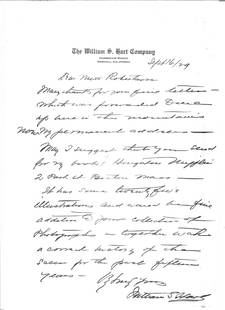 The William S. Hart Company
Horseshoe Ranch
Newhall, California
Sept 16/29
Dear Miss Robertson
Many thanks for your fine letter -
which was forwarded to me
up here in the mountains
Now my permanent address -
May I suggest that you send
for my book Houghton Mifflin
2 Park st Boston Mass -
It has some twenty five
illustrations and would be a fine
addition to your collection of
Photographs - together with
a correct history of the
screen for the past fifteen
years -
William S. Hart